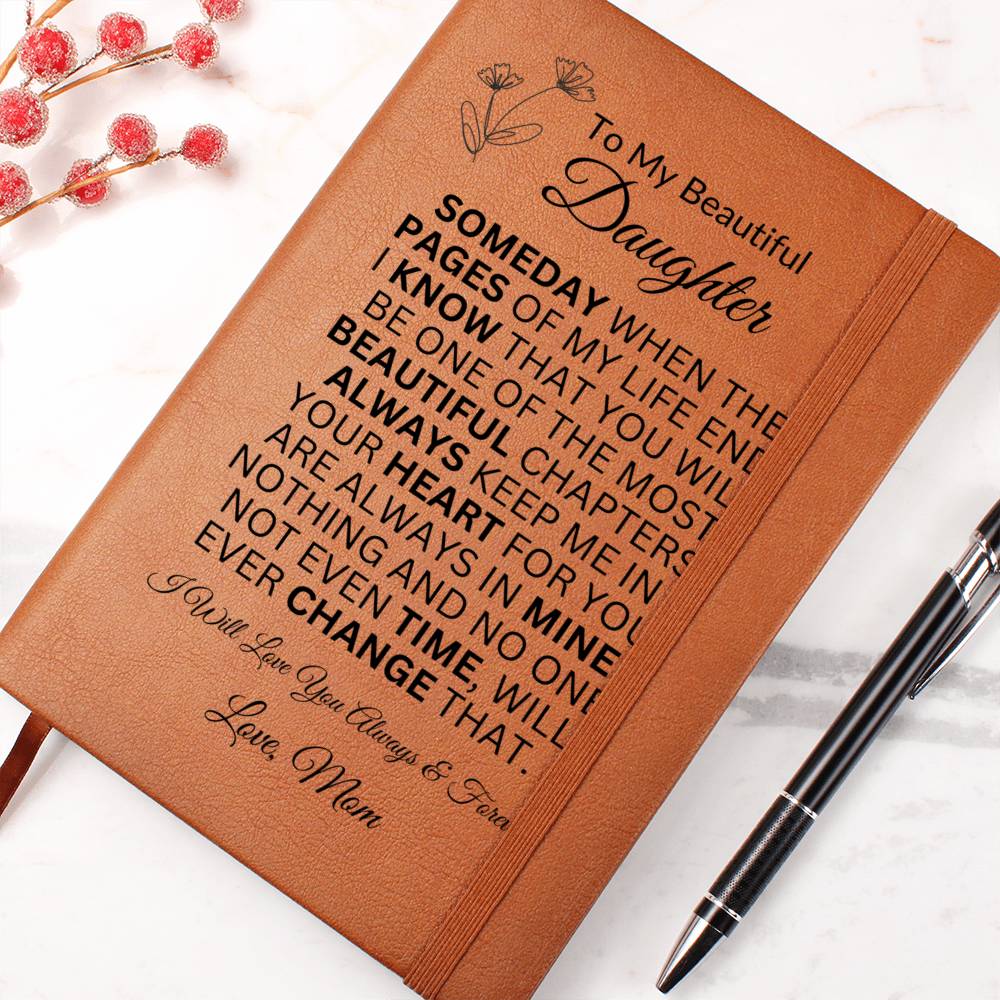 To My Beautiful
Daughter
SOMEDAY WHEN THE
PAGES OF MY LIFE END
I KNOW THAT YOU WILL
BE ONE OF THE MOST
BEAUTIFUL CHAPTERS
ALWAYS KEEP ME IN
YOUR HEART FOR YOU
ARE ALWAYS IN MINE
NOTHING AND NO ONE
NOT EVEN TIME, WILL
EVER CHANGE THAT.
I Will Love You Always & Forev
Love, Mom